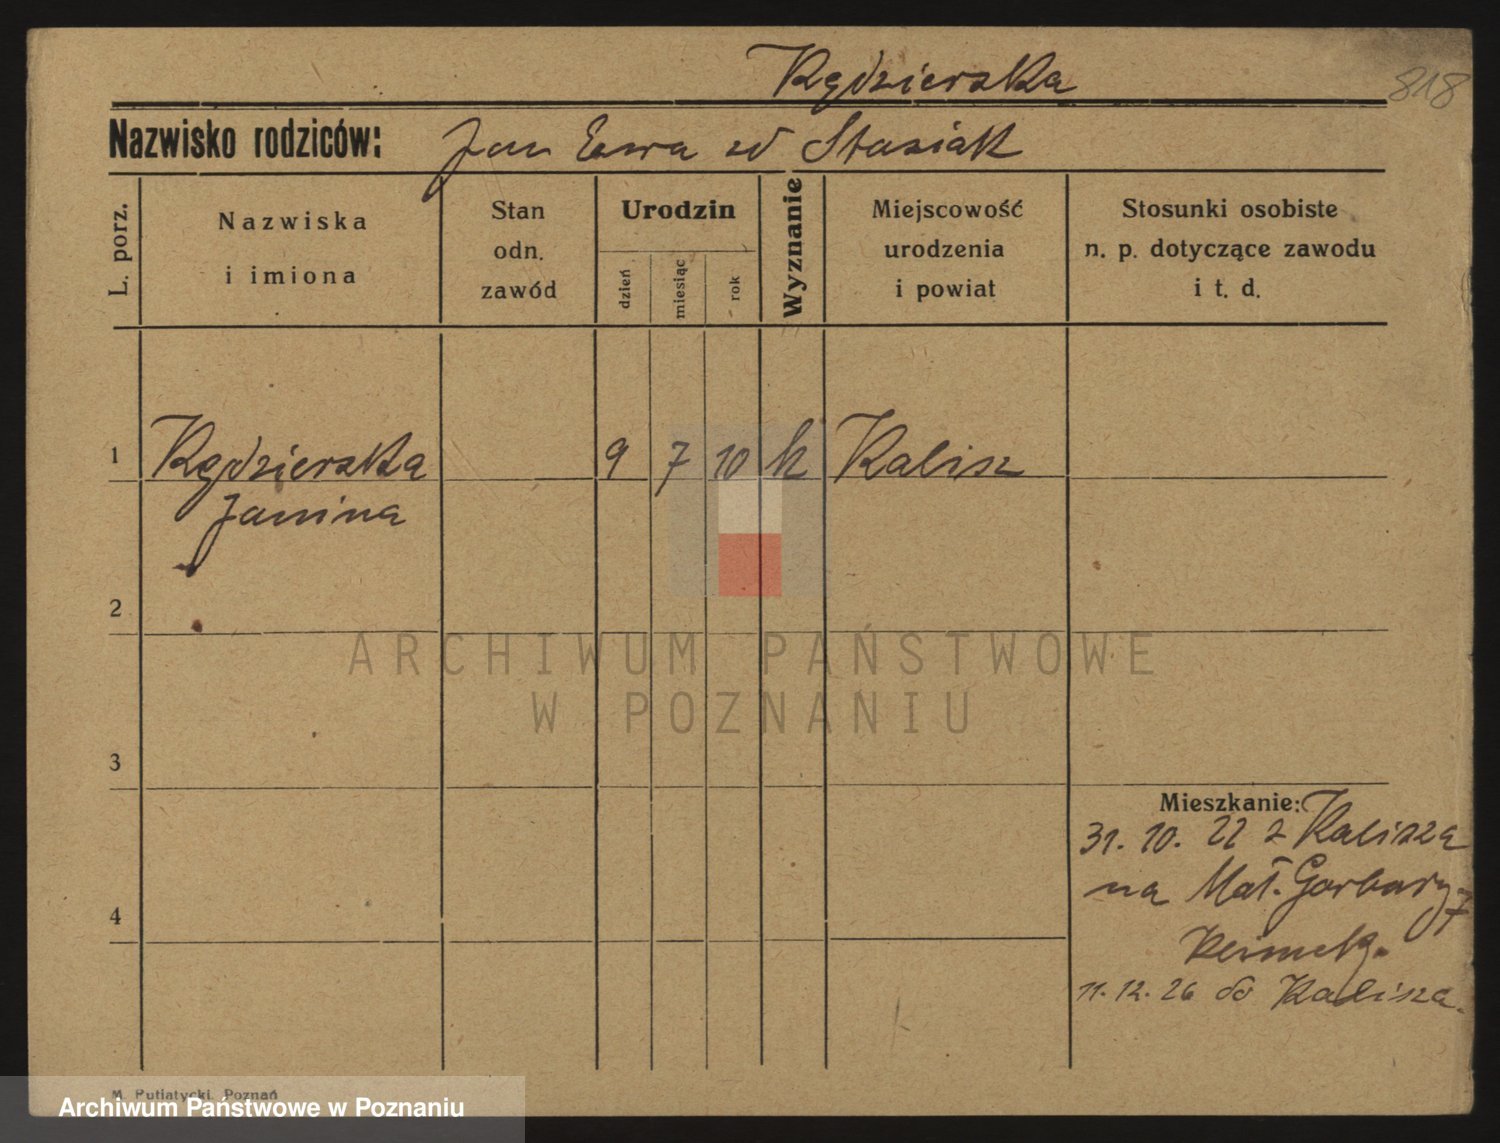 Kędzierska
818
Nazwisko rodziców: Jan Ewa zd Stasiak
L. porz.
Nazwiska i imiona
Stan odn. zawód
Urodzin
dzień
miesiąc
rok
Wyznanie
Miejscowość urodzenia i powiat
Stosunki osobiste n. p. dotyczące zawodu i t. d.
1 Kędzierska 9 7 10 k Kalisz
Janina
2
ARCHIWUM PAŃSTWOWE
W POZNANIU
3
Mieszkanie:
31. 10. 22 z Kalisza
na Mał. Garbary 7
4
11. 12. 26 do Kalisza.
M. Putiatycki. Poznań
Archiwum Państwowe w Poznaniu